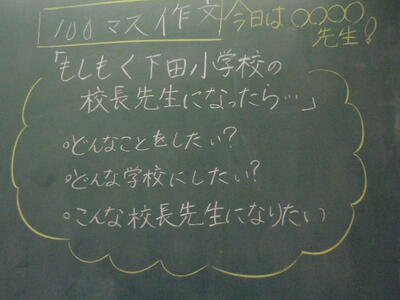 100マス作文
今日は○○○○
先生!
「もしもく下田小学校の
校長先生になったら…」
・どんなことをしたい?
・どんな学校にしたい?
・こんな校長先生になりたい